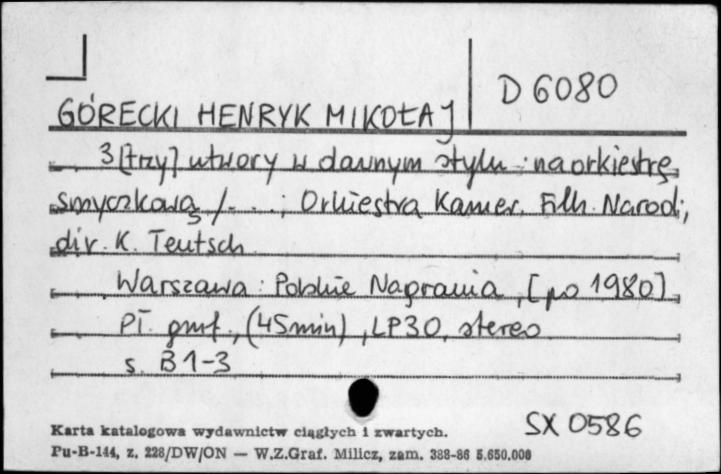 D 6080
GÓRECKI HENRYK MIKOŁAJ
3 [trzy] utwory w dawnym stylu : na orkiestrę
smyczkową / . . . ; Orkiestra Kamer. Filh. Narod.;
dir. K. Teutsch
Warszawa : Polskie Nagrania, [po 1980]
Pł. gmf., (45 min), LP30, stereo
s. B 1-3
SX 0586
Karta katalogowa wydawnictw ciągłych i zwartych.
Pu-B-144, z. 228/DW/ON — W.Z.Graf. Milicz, zam. 388-86 5.650.000